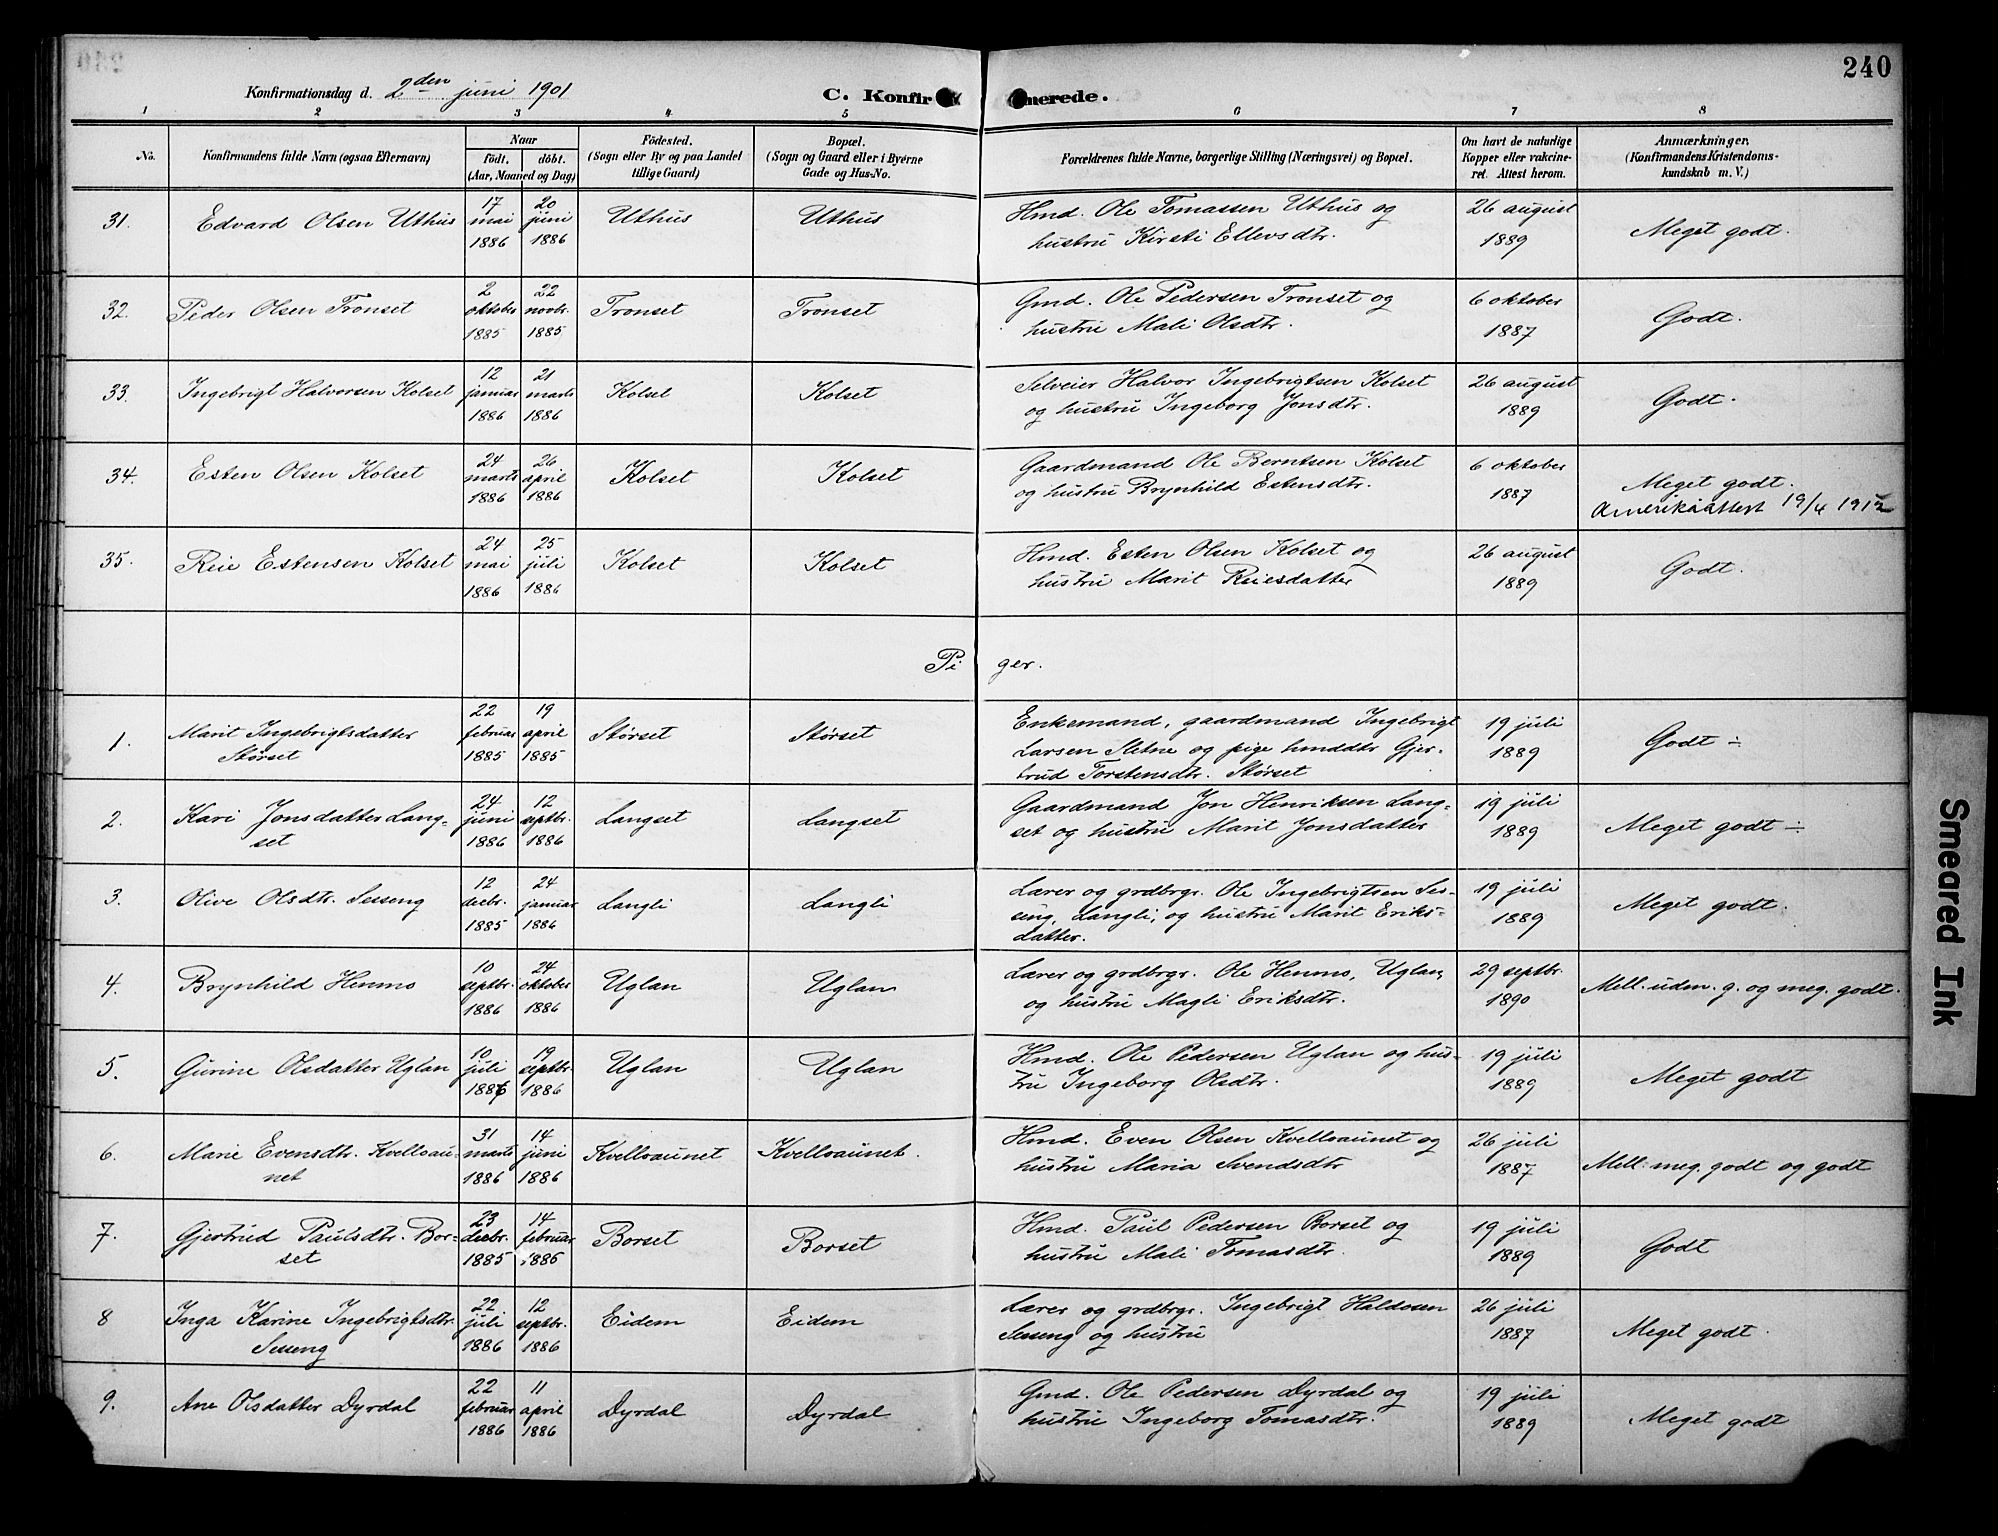 240
Konfirmationsdag d. 2den juni 1901
C. Konfirmerede.
1 2 3 4 5 6 7 8
No.
Konfirmandens fulde Navn (ogsaa Efternavn)
Naar
födt. döbt.
(Aar, Maaned og Dag)
Födested.
(Sogn eller By og paa Landet
tillige Gaard)
Bopæl.
(Sogn og Gaard eller i Byerne
Gade og Hus-No.
Forældrenes fulde Navne, borgerlige Stilling (Næringsvei) og Bopæl.
Om havt de naturlige
Kopper eller vakcine-
ret. Attest herom.
Anmærkninger.
(Konfirmandens Kristendoms-
kundskab m. V.)
31. Edvard Olsen Uthus
17 mai 1886
20 juni 1886
Uthus
Uthus
Hmd. Ole Tomassen Uthus og
hustru Kirsti Ellevsdtr.
26 august
1889
Meget godt.
32. Peder Olsen Tronset
2 oktober 1885
22 novbr. 1885
Tronset
Tronset
Gmd. Ole Pedersen Tronset og
hustru Mali Olsdtr.
6 oktober
1887
Godt.
33. Ingebrigt Halvorsen Kolset
12 januar 1886
21 marts 1886
Kolset
Kolset
Selveier Halvor Ingebrigtsen Kolset
og hustru Ingeborg Jonsdtr.
26 august
1889
Godt.
34. Esten Olsen Kolset
24 marts 1886
26 april 1886
Kolset
Kolset
Gaardmand Ole Berntsen Kolset
og hustru Brynhild Estensdtr.
6 oktober
1887
Meget godt.
Amerikaattest 19/4 1912
35. Reie Estensen Kolset
24 mai 1886
25 juli 1886
Kolset
Kolset
Hmd. Esten Olsen Kolset og
hustru Marit Reiesdatter
26 august
1889
Godt.
Piger.
1. Marit Ingebrigtsdatter
Størset
22 februar 1885
19 april 1885
Størset
Størset
Enkemand, gaardmand Ingebrigt
Larsen Sletne og pige hmddtr Gjer-
trud Torstensdtr. Størset
19 juli
1889
Godt ÷
2. Kari Jonsdatter Lang-
set
24 juni 1886
12 septbr. 1886
Langset
Langset
Gaardmand Jon Henriksen Lang-
set og hustru Marit Jonsdatter
19 juli
1889
Meget godt ÷
3. Olive Olsdtr. Sesseng
12 decbr. 1885
24 januar 1886
Langli
Langli
Lærer og grdbrgr. Ole Ingebrigtsen Ses-
seng, Langli, og hustru Marit Eriks-
datter.
19 juli
1889
Meget godt.
4. Brynhild Hemmo
10 septbr. 1886
24 oktober 1886
Uglan
Uglan
Lærer og grdbrgr. Ole Hemmo, Uglan,
og hustru Magli Eriksdtr.
29 septbr.
1890
Mell. uden. g. og meg. godt.
5. Gurine Olsdatter Uglan
10 juli 1886
19 septbr. 1886
Uglan
Uglan
Hmd. Ole Pedersen Uglan og hus-
tru Ingeborg Olsdtr.
19 juli
1889
Meget godt
6. Marie Evensdtr. Kvelloau-
net
31 marts 1886
14 juni 1886
Kvelloaunet
Kvelloaunet.
Hmd. Even Olsen Kvelloaunet og
hustru Maria Svendsdtr
26 juli
1887
Mell. meg. godt og godt
7. Gjertrud Paulsdtr. Bor-
set
23 decbr. 1885
14 februar 1886
Borset
Borset
Hmd. Paul Pedersen Borset og
hustru Mali Tomasdtr.
19 juli
1889
Godt
8 Inga Karine Ingebrigtsdtr.
Sesseng
22 juli 1886
12 septbr. 1886
Eidem
Eidem
Lærer og grdbrgr. Ingebrigt Haldosen
Sesseng og hustru
26 juli
1887
Meget godt.
9. Ane Olsdatter Dyrdal
22 februar 1886
11 april 1886
Dyrdal
Dyrdal
Gmd. Ole Pedersen Dyrdal og
hustru Ingeborg Tomasdtr.
19 juli
1889
Meget godt
Smeared Ink